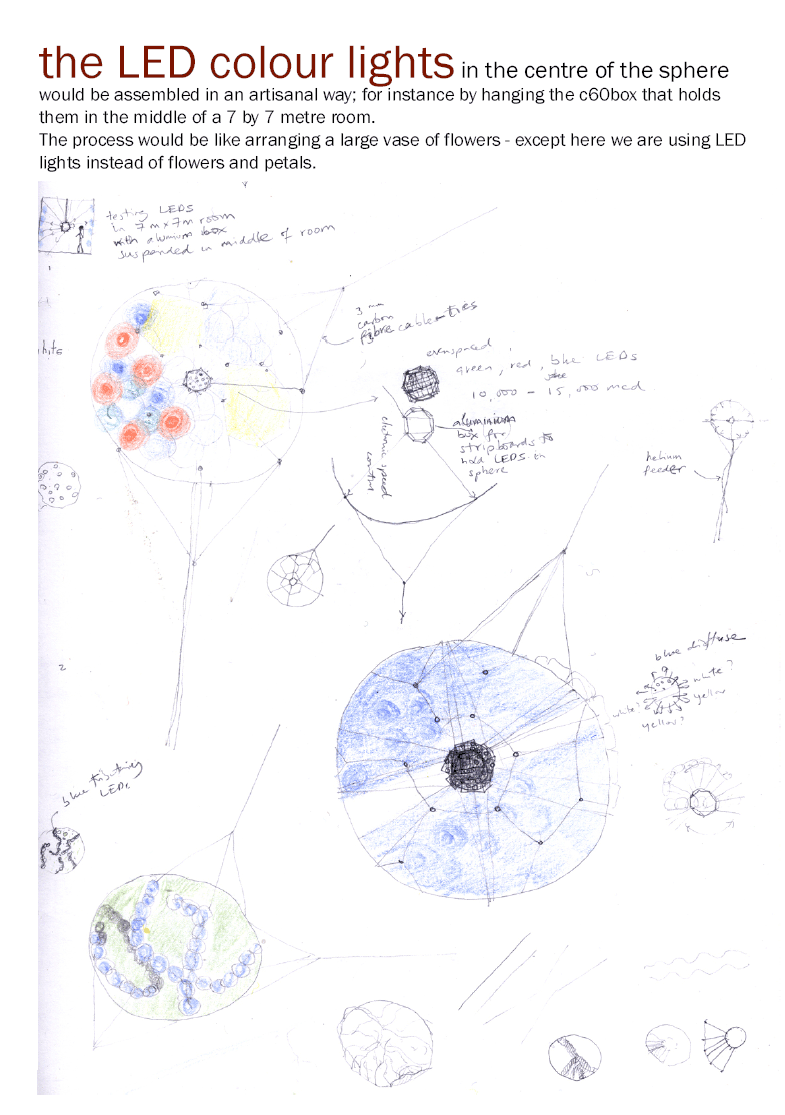 the LED colour lights in the centre of the sphere
would be assembled in an artisanal way; for instance by hanging the c60box that holds
them in the middle of a 7 by 7 metre room.
The process would be like arranging a large vase of flowers - except here we are using LED
lights instead of flowers and petals.
testing LEDS
in 7m x 7m room
with alumium box
suspended in middle of room
1
3 mm
carbon
fibre cable-ties
evenspaced
green, red, blue LEDs
10,000 - 15,000 mcd
aluminium
box for
stripboards to
hold LEDS in
sphere
electronic speed
control
helium
feeder
2
blue diffuse
white?
yellow
white?
yellow?
blue
LEDs